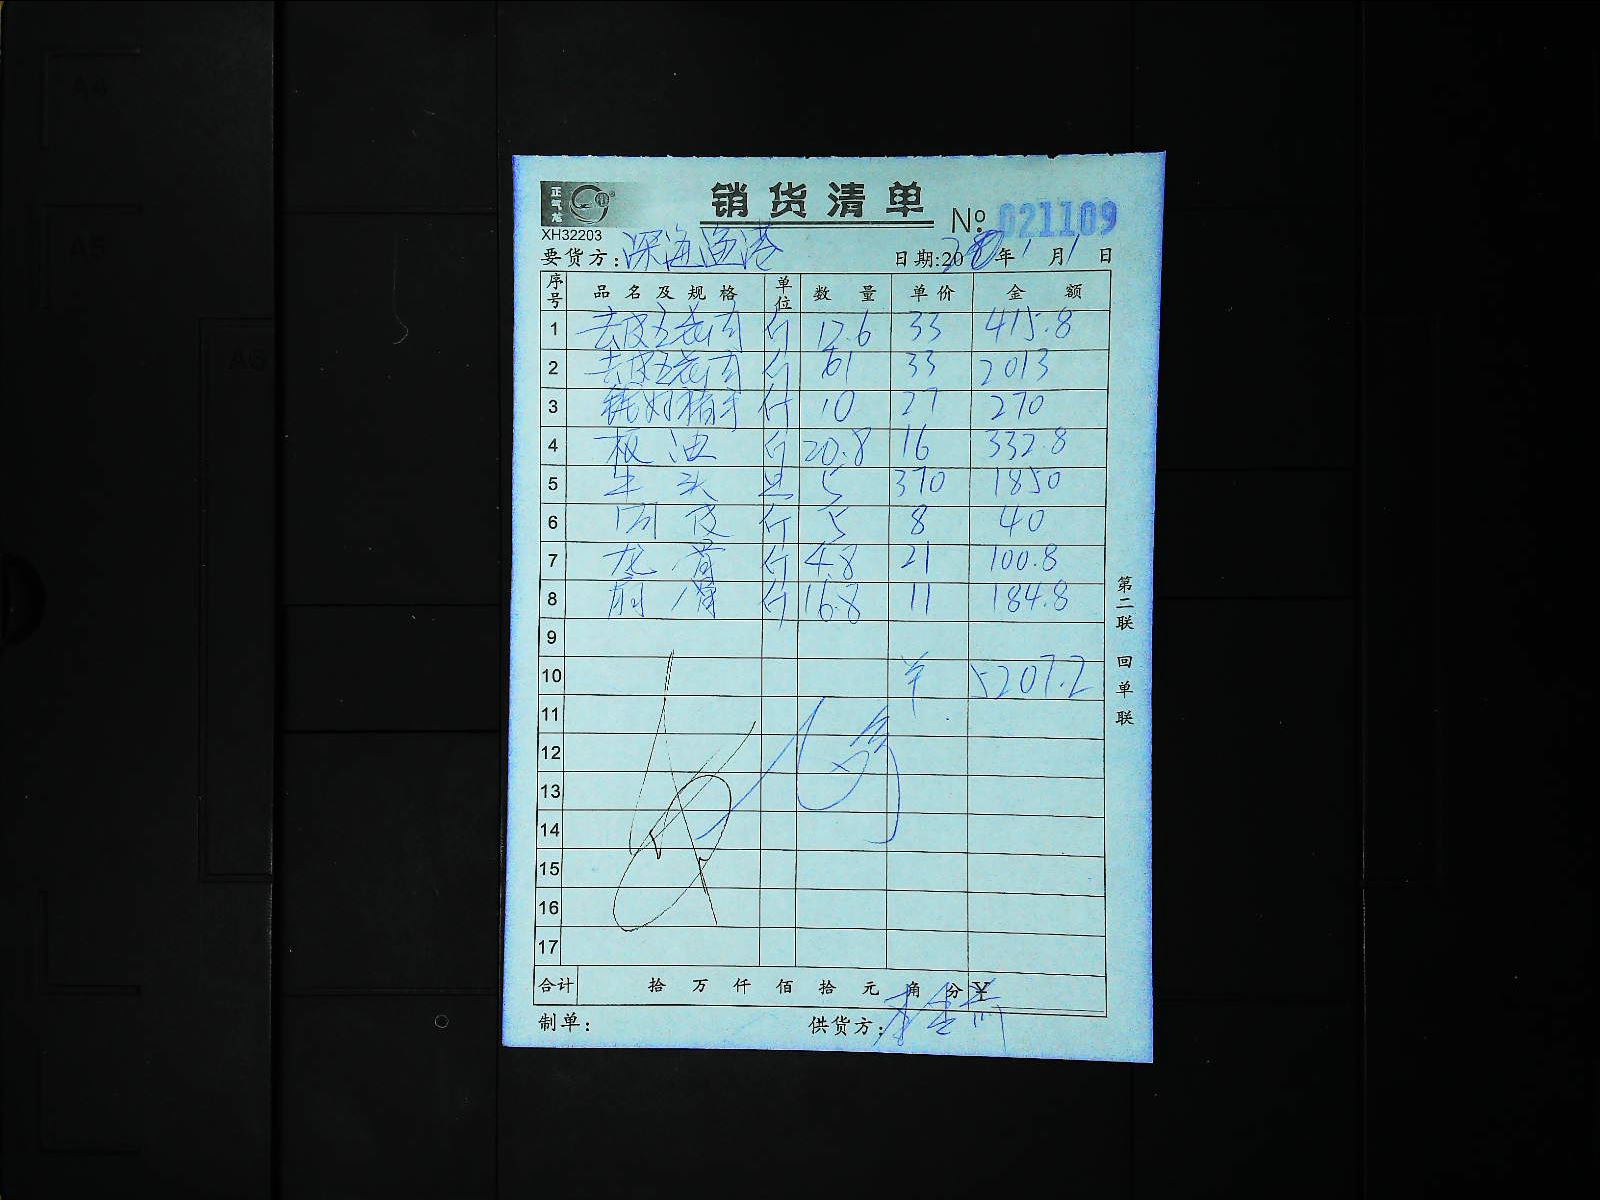 正气龙
XH32203
销货清单
№ 021109
要货方：深海渔港 日期:20 年1月1日
序号 品名及规格 单位 数量 单价 金额
1 去皮五花肉 斤 12.6 33 415.8
2 去皮五花肉 斤 61 33 2013
3 猪手 斤 10 27 270
4 板油 斤 20.8 16 332.8
5 牛头 只 5 370 1850
6 肉皮 斤 5 8 40
7 龙骨 斤 4.8 21 100.8
8 扇骨 斤 16.8 11 184.8
9
10 羊 5207.2
11
12
13
14
15
16
17
合计 拾 万 仟 佰 拾 元 角 分 ¥
制单： 供货方：
第二联 回单联
A4
A5
A6